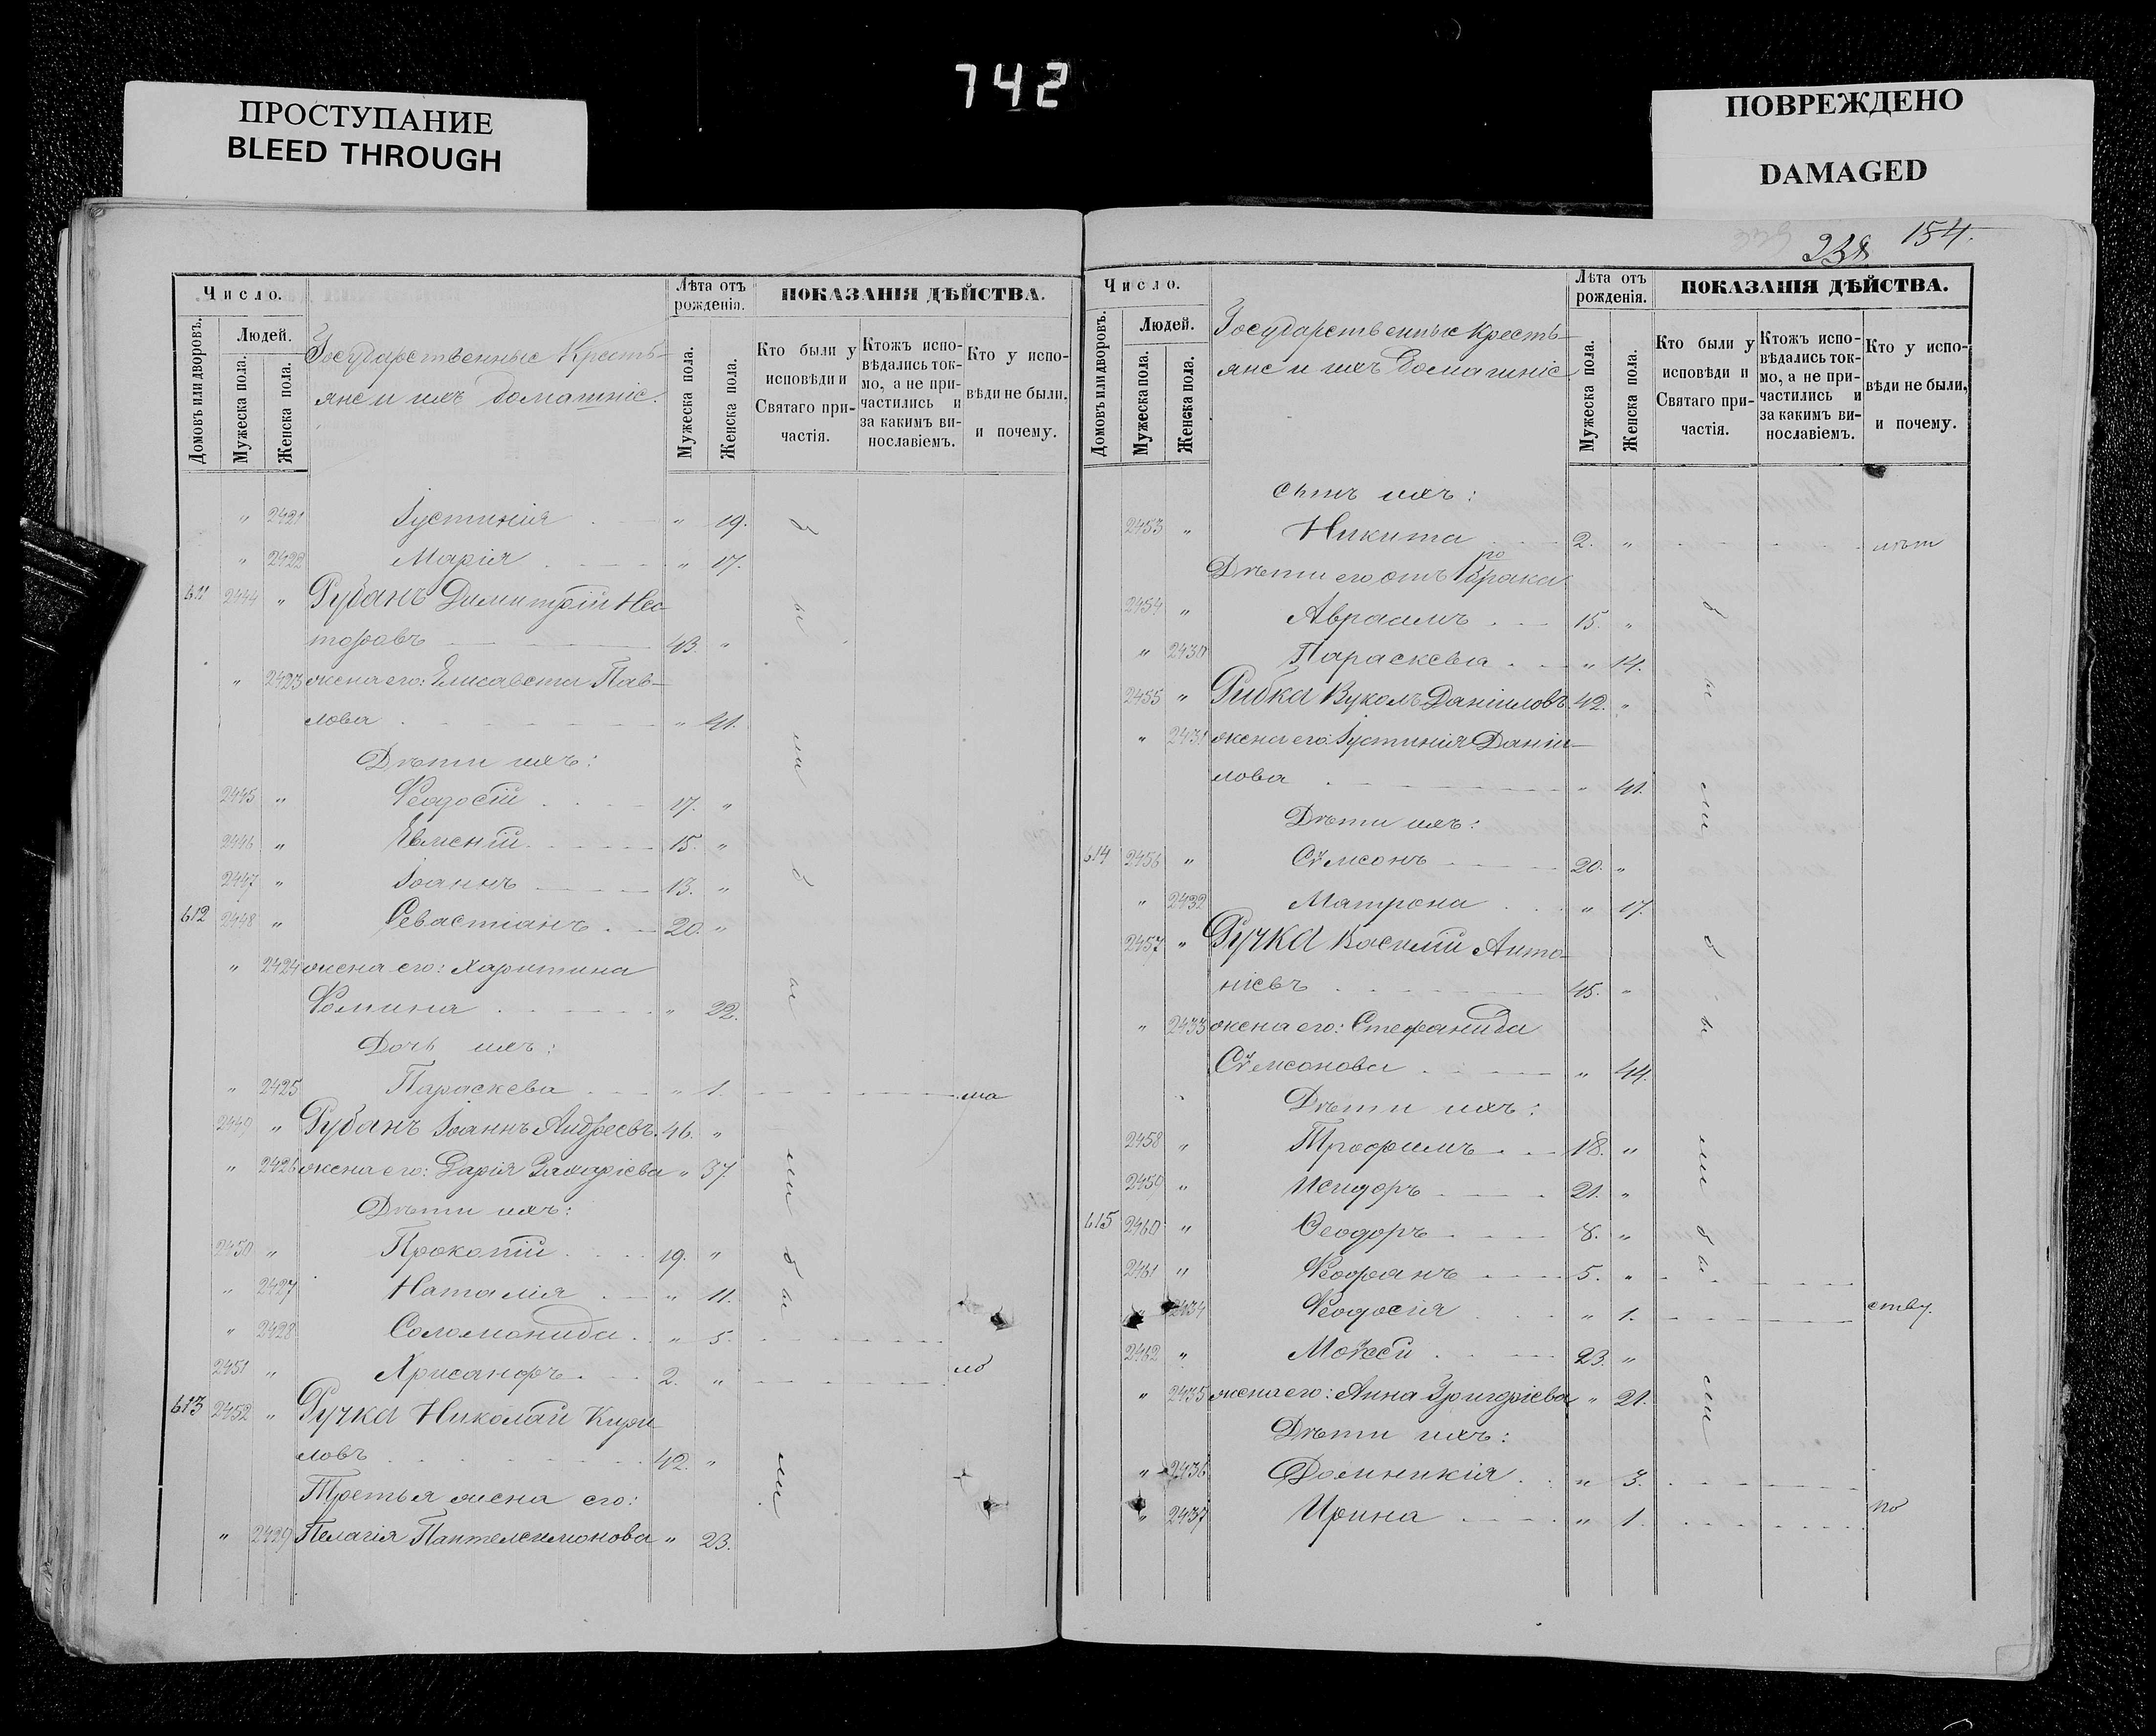 742
ПРОСТУПАНИЕ
BLEED THROUGH
ПОВРЕЖДЕНО
DAMAGED
Число.
Домовъ или дворовъ.
Людей.
Мужеска пола.
Женска пола.
Государственные Кресть-
яне и ихъ домашніе.
Лѣта отъ
рожденія.
Мужеска пола.
Женска пола.
ПОКАЗАНІЯ ДѢЙСТВА.
Кто были у
исповѣди и
Святаго при-
частія.
Ктожъ испо-
вѣдались ток-
мо, а не при-
частились и
за какимъ ви-
нославіемъ.
Кто у испо-
вѣди не были,
и почему.
" 2421 Іустинія " 19.
" 2422 Марія " 17.
611 2444 " Рубанъ Димитрій Нес-
торовъ 43. "
" 2423 жена его: Елисавета Пав-
лова " 41.
Дѣти ихъ:
2445 " Ѳеодосій 17. "
2446 " Евменій 15. "
2447 " Іоаннъ 13. "
612 2448 " Севастіанъ 20. "
" 2424 жена его: Харитина
Ѳомина " 22.
Дочь ихъ:
" 2425 Параскева " 1. ма
2449 " Рубанъ Іоаннъ Андреевъ 46. "
" 2426 жена его: Дарія Захаріева " 37.
Дѣти ихъ:
2450 " Прокопій 19. "
" 2427 Наталія " 11.
" 2428 Соломонида " 5.
2451 " Хрисанфъ 2. " ло
613 2452 " Ручка Николай Кири-
ловъ 42. "
Третья жена его:
" 2429 Пелагія Пантелеимонова " 23.
бы
ли
бы
ли
бы
ли
238 154.
Число.
Домовъ или дворовъ.
Людей.
Мужеска пола.
Женска пола.
Государственные Кресть-
яне и ихъ домашніе
Лѣта отъ
рожденія.
Мужеска пола.
Женска пола.
ПОКАЗАНІЯ ДѢЙСТВА.
Кто были у
исповѣди и
Святаго при-
частія.
Ктожъ испо-
вѣдались ток-
мо, а не при-
частились и
за какимъ ви-
нославіемъ.
Кто у испо-
вѣди не были,
и почему.
сынъ ихъ:
2453 " Никита 2. " лѣт
Дѣти его отъ 1го брака
2454 " Авраамъ 15. "
" 2430 Параскева " 14.
2455 " Рибка Вуколъ Даніиловъ 42. "
" 2431 жена его Іустинія Даніи-
лова " 41.
Дѣти ихъ:
614 2456 " Сѵмеонъ 20. "
" 2432 Матрона " 17.
2457 " Ручка Василій Анто-
ніевъ 45. "
" 2433 жена его: Стефанида
Сѵмеонова " 44.
Дѣти ихъ:
2458 " Трофимъ 18. "
2459 " Исидоръ 21. "
615 2460 " Ѳеодоръ 8. "
2461 " Ѳеофанъ 5. "
" 2434 Ѳеодосія " 1. ству.
2462 " Моѵсей 23. "
" 2435 жена его: Анна Григоріева " 21.
Дѣти ихъ:
" 2436 Домникія " 3.
" 2437 Ирина " 1. по
бы
ли
бы
ли
бы
ли